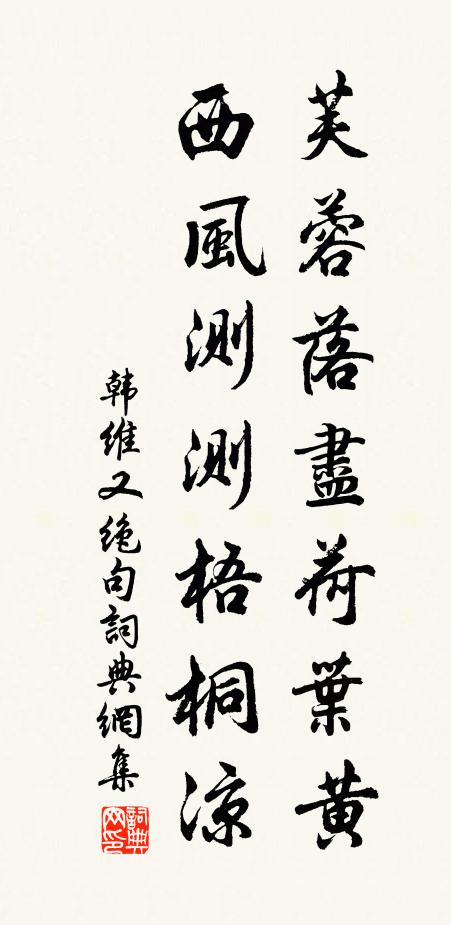 芙蓉落盡荷葉黃
西風測測梧桐涼
韩維又绝句詞典網集
詞典网印